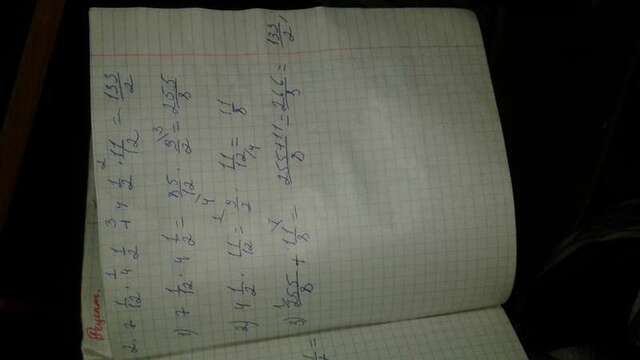 Рецепт.
2. 7 1/12 · 4 1/2 + 4 1/2 · 11/12 = 133/2
1) 7 1/12 · 4 1/2 = 85/12 · 9/2 = 255/8
2) 4 1/2 · 11/12 = 9/2 · 11/12 = 11/8
3) 255/8 + 11/8 = 255+11/8 = 266/8 = 133/2